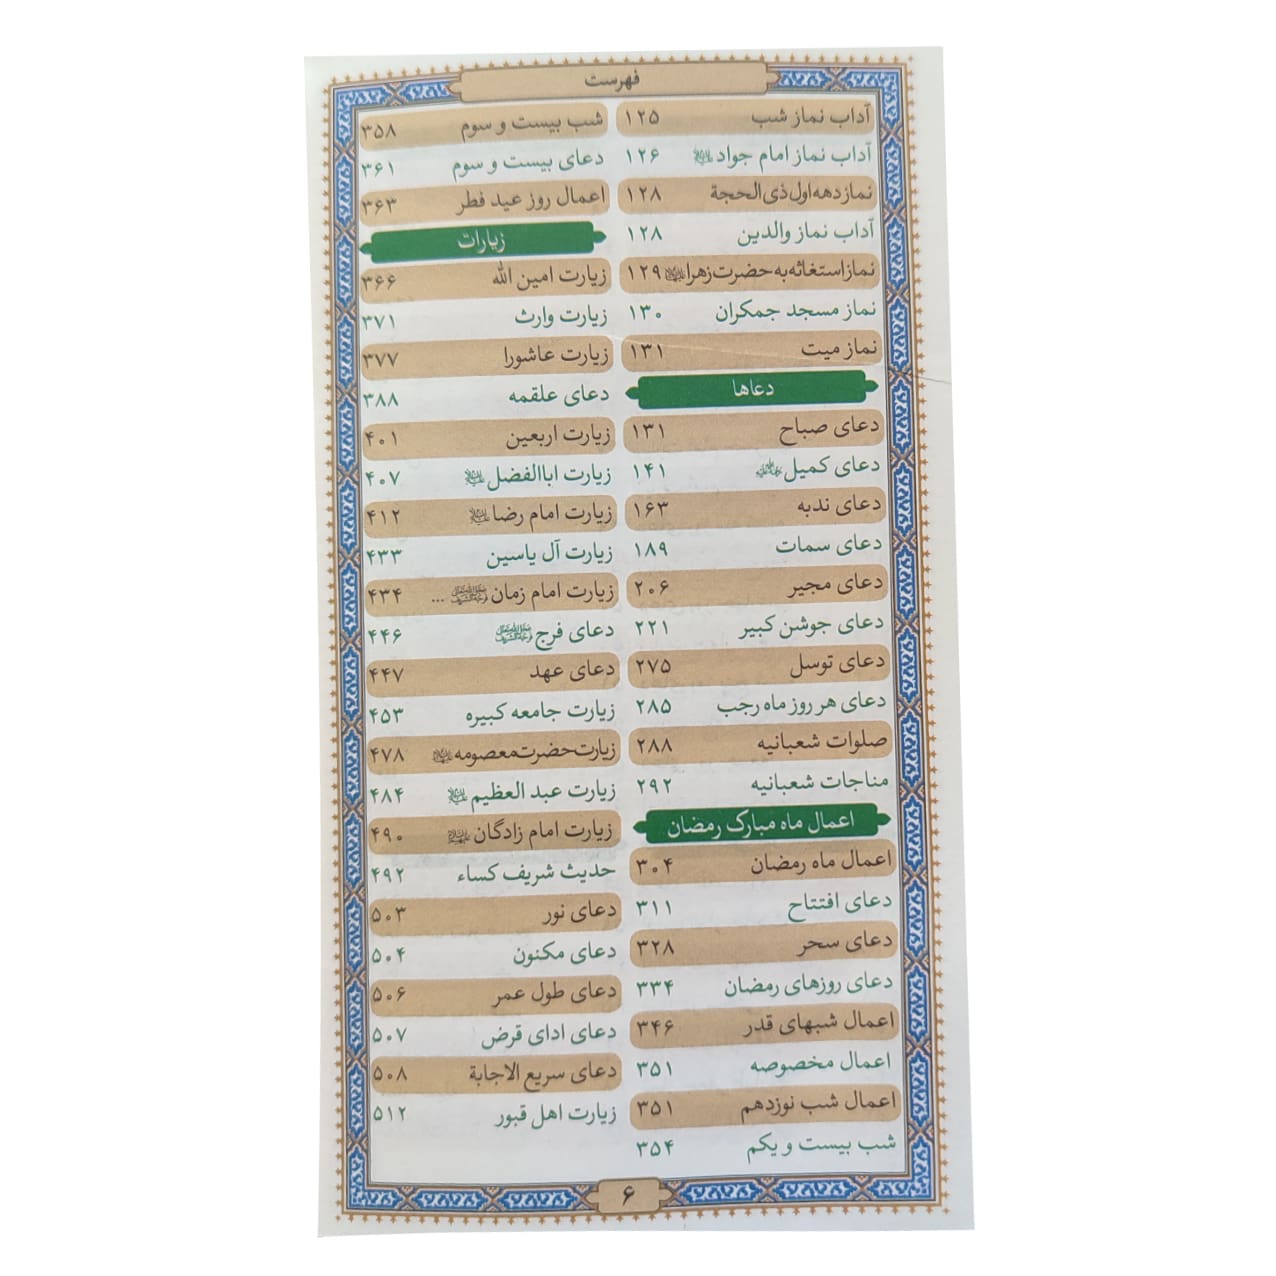 فهرست
آداب نماز شب ۱۲۵
آداب نماز امام جواد علیه‌السلام ۱۲۶
نماز دهه اول ذی الحجة ۱۲۸
آداب نماز والدین ۱۲۸
نماز استغاثه به حضرت زهرا ۱۲۹
نماز مسجد جمکران ۱۳۰
نماز میت ۱۳۱
دعاها
دعای صباح ۱۳۱
دعای کمیل ۱۴۱
دعای ندبه ۱۶۳
دعای سمات ۱۸۹
دعای مجیر ۲۰۶
دعای جوشن کبیر ۲۲۱
دعای توسل ۲۷۵
دعای هر روز ماه رجب ۲۸۵
صلوات شعبانیه ۲۸۸
مناجات شعبانیه ۲۹۲
اعمال ماه مبارک رمضان
اعمال ماه رمضان ۳۰۴
دعای افتتاح ۳۱۱
دعای سحر ۳۲۸
دعای روزهای رمضان ۳۳۴
اعمال شبهای قدر ۳۴۶
اعمال مخصوصه ۳۵۱
اعمال شب نوزدهم ۳۵۱
شب بیست و یکم ۳۵۴
شب بیست و سوم ۳۵۸
دعای بیست و سوم ۳۶۱
اعمال روز عید فطر ۳۶۳
زیارات
زیارت امین الله ۳۶۶
زیارت وارث ۳۷۱
زیارت عاشورا ۳۷۷
دعای علقمه ۳۸۸
زیارت اربعین ۴۰۱
زیارت اباالفضل ۴۰۷
زیارت امام رضا ۴۱۲
زیارت آل یاسین ۴۳۳
زیارت امام زمان ... ۴۳۴
دعای فرج ۴۴۶
دعای عهد ۴۴۷
زیارت جامعه کبیره ۴۵۳
زیارت حضرت معصومه ۴۷۸
زیارت عبد العظیم ۴۸۴
زیارت امام زادگان ۴۹۰
حدیث شریف کساء ۴۹۲
دعای نور ۵۰۳
دعای مکنون ۵۰۴
دعای طول عمر ۵۰۶
دعای ادای قرض ۵۰۷
دعای سریع الاجابة ۵۰۸
زیارت اهل قبور ۵۱۲
۶